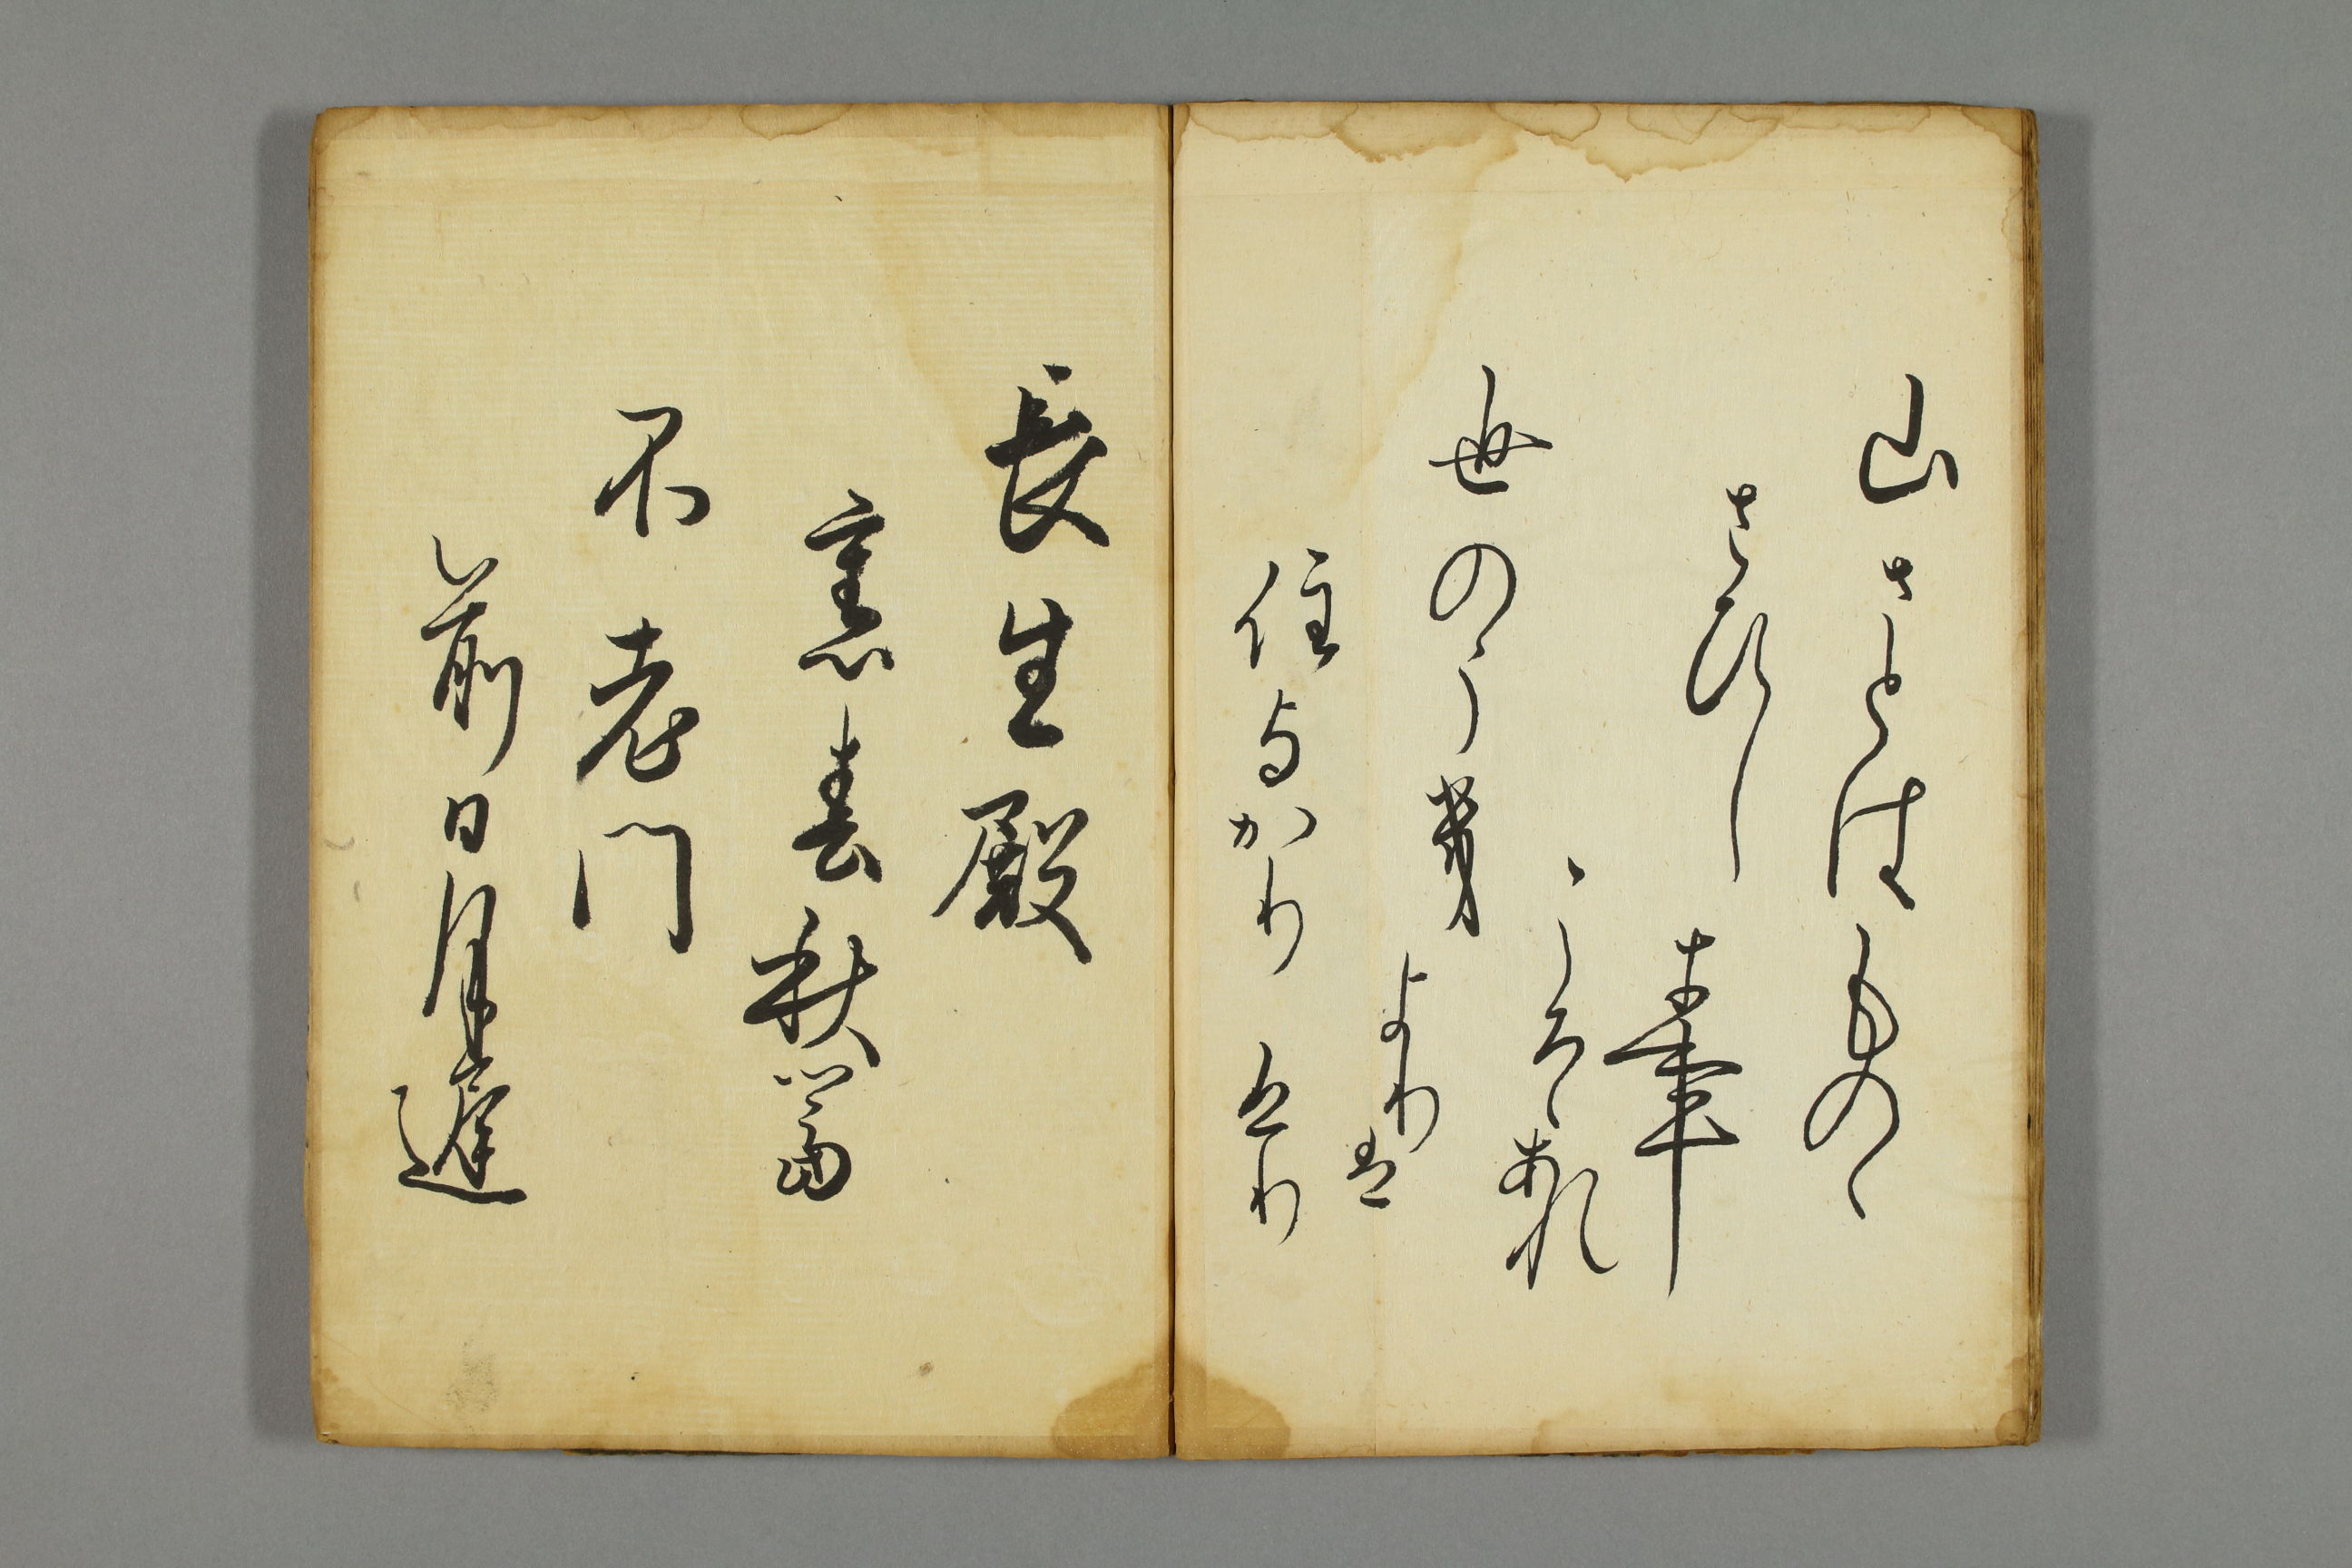 山さとはものゝ
さひしき事
こそあれ
世のうき
よりは
住よかりけり
長生殿
裏春秋富
不老門
前日月遲